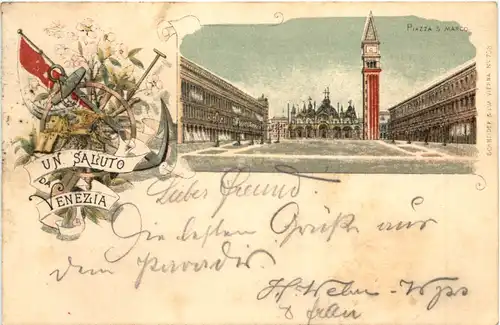 PIAZZA S. MARCO
UN SALUTO
DA
VENEZIA
Lieber Freund.
Die besten Grüße aus
dem Paradis.
H. Weber-
& Frau